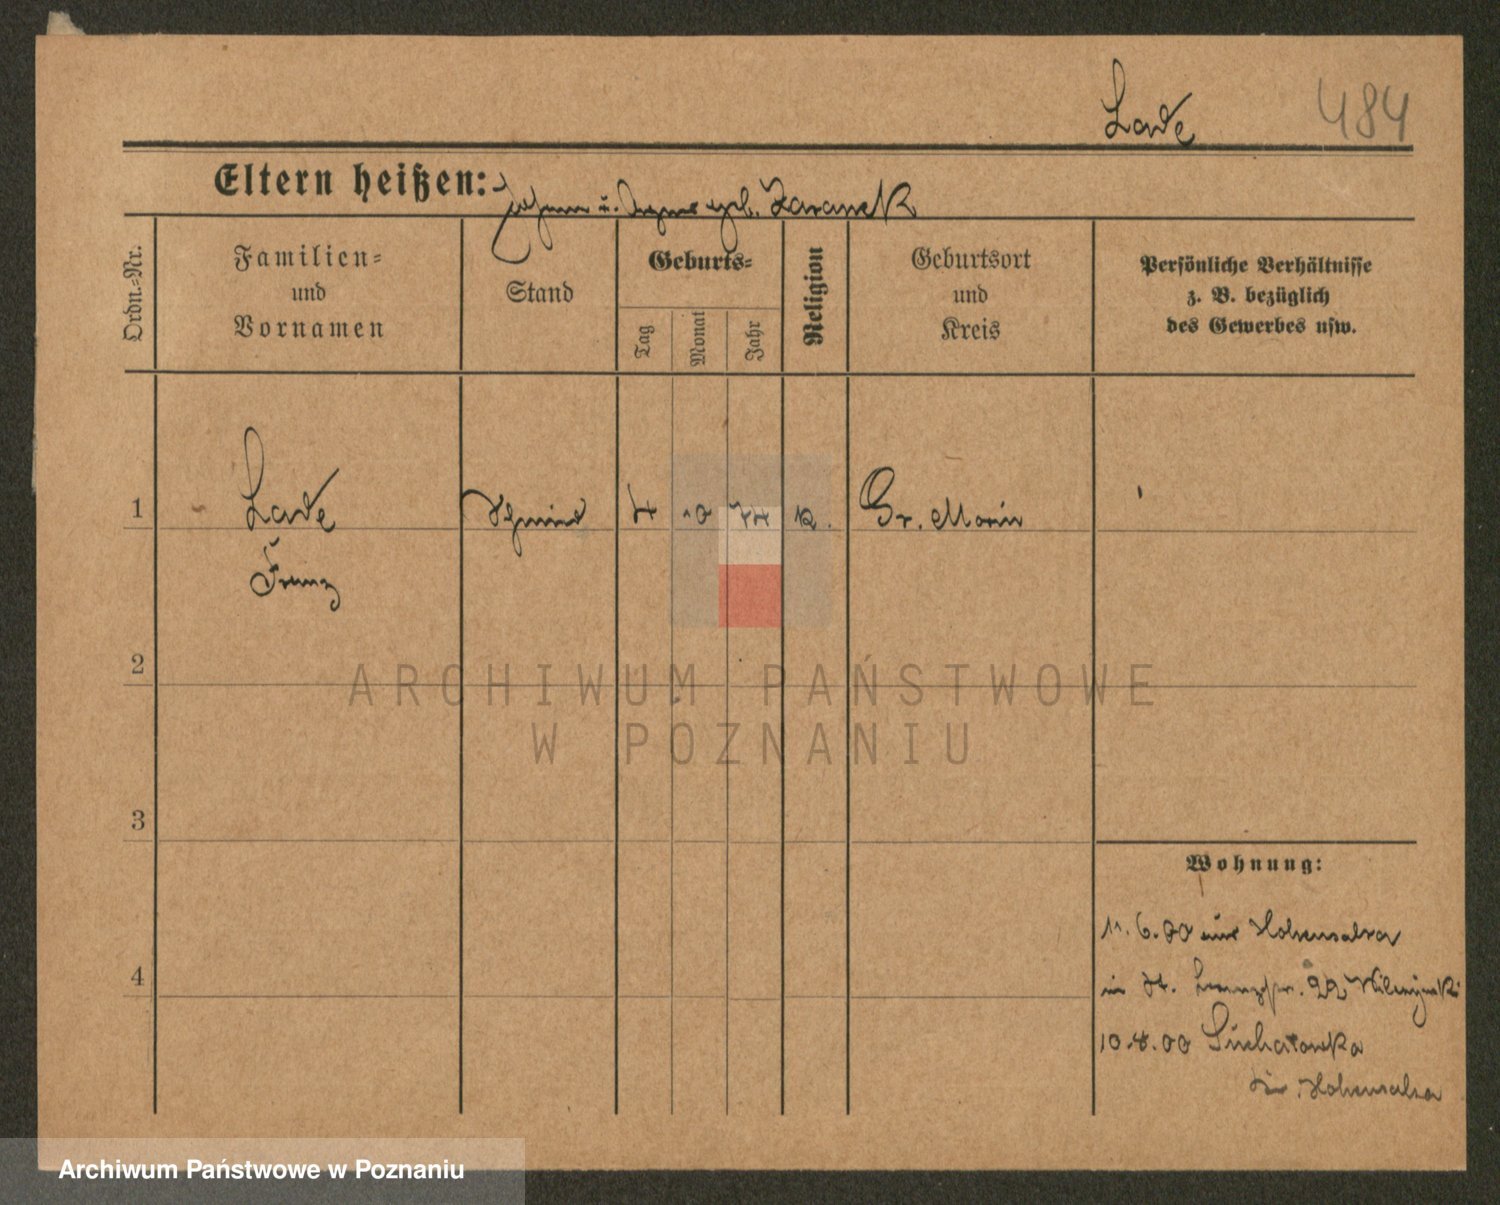 Lade 484
Eltern heißen: Johann u. Agnes geb.
Ordn.-Nr.
Familien-
und
Vornamen
Stand
Geburts-
Tag
Monat
Jahr
Religion
Geburtsort
und
Kreis
Persönliche Verhältnisse
z. B. bezüglich
des Gewerbes usw.
1 Lade 4 10 74 k. Gr. Morin
Franz
2
3
4
Wohnung:
11.6.00 aus Hohensalza
in St. 22
10.8.00
Kr. Hohensalza
ARCHIWUM PAŃSTWOWE
W POZNANIU
Archiwum Państwowe w Poznaniu